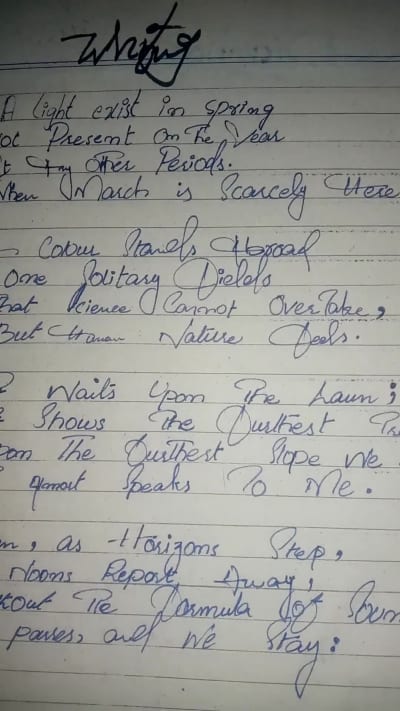 Writing
A light exist in spring
ot Present On The Year
t Any Other Periods.
hen March is Scarcely Here
Colour Stands Abroad
One Solitary Fields
hat Science Cannot OverTake,
But Human Nature Feels.
Waits Upon The Lawn;
Shows The Furthest Tr
pon The Furthest Slope We
almost Speaks To Me.
n, as Horizons Step,
Noons Report Away,
thout The Formula Of Soun
passes, and We Stay: